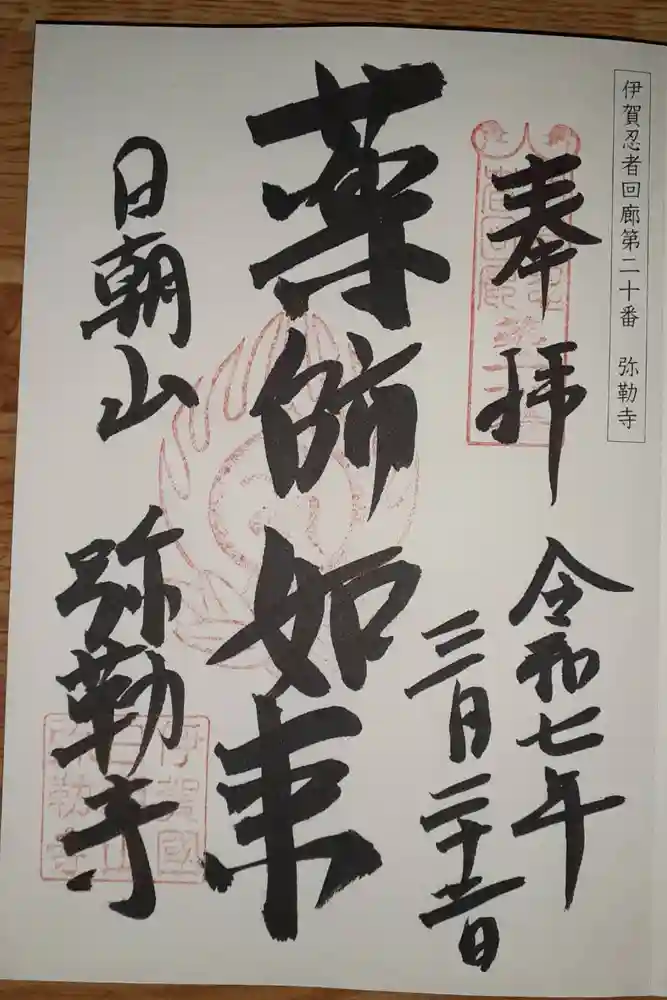 伊賀忍者回廊第二十番　弥勒寺
奉拝
令和七年
三月二十
日
薬師如来
日朝山
弥勒寺
伊賀國